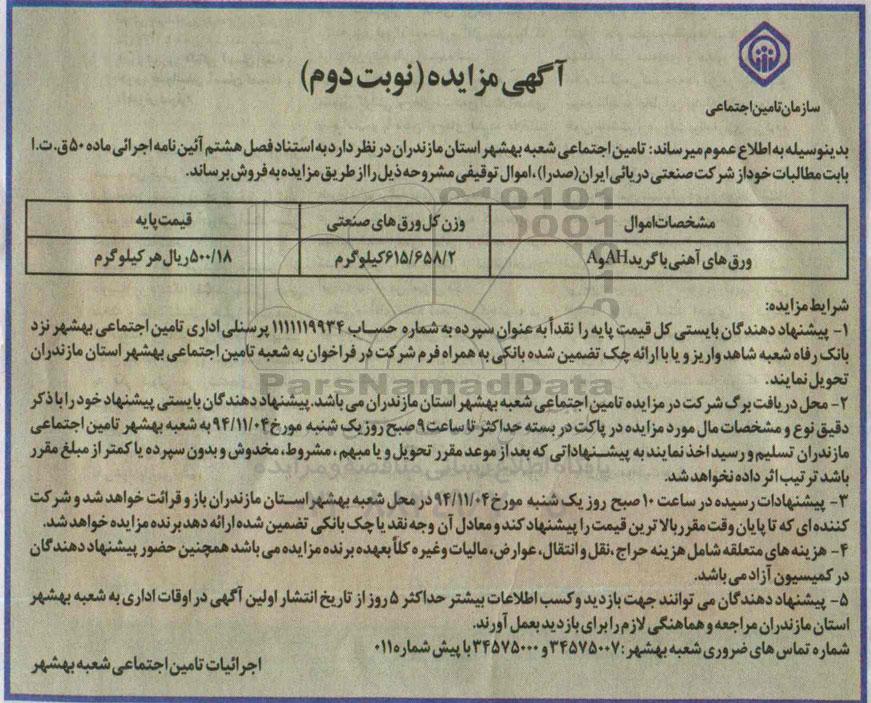 سازمان تامین اجتماعی
آگهی مزایده (نوبت دوم)
بدینوسیله به اطلاع عموم میرساند: تامین اجتماعی شعبه بهشهر استان مازندران در نظر دارد به استناد فصل هشتم آئین نامه اجرائی ماده ۵۰ ق.ت.ا
بابت مطالبات خود از شرکت صنعتی دریائی ایران (صدرا)، اموال توقیفی مشروحه ذیل را از طریق مزایده به فروش برساند.
مشخصات اموال وزن کل ورق های صنعتی قیمت پایه
ورق های آهنی با گرید AH و A ۶۱۵/۶۵۸/۲ کیلوگرم ۵۰۰/۱۸ ریال هر کیلوگرم
شرایط مزایده:
۱- پیشنهاد دهندگان بایستی کل قیمت پایه را نقداً به عنوان سپرده به شماره حساب ۱۱۱۱۱۱۹۹۳۴ پرسنلی اداری تامین اجتماعی بهشهر نزد
بانک رفاه شعبه شاهد واریز و یا با ارائه چک تضمین شده بانکی به همراه فرم شرکت در فراخوان به شعبه تامین اجتماعی بهشهر استان مازندران
تحویل نمایند.
۲- محل دریافت برگ شرکت در مزایده تامین اجتماعی شعبه بهشهر استان مازندران می باشد. پیشنهاد دهندگان بایستی پیشنهاد خود را با ذکر
دقیق نوع و مشخصات مال مورد مزایده در پاکت در بسته حداکثر تا ساعت ۹ صبح روز یک شنبه مورخ ۹۴/۱۱/۰۴ به شعبه بهشهر تامین اجتماعی
مازندران تسلیم و رسید اخذ نمایند به پیشنهاداتی که بعد از موعد مقرر تحویل و یا مبهم، مشروط، مخدوش و بدون سپرده یا کمتر از مبلغ مقرر
باشد ترتیب اثر داده نخواهد شد.
۳- پیشنهادات رسیده در ساعت ۱۰ صبح روز یک شنبه مورخ ۹۴/۱۱/۰۴ در محل شعبه بهشهر استان مازندران باز و قرائت خواهد شد و شرکت
کننده ای که تا پایان وقت مقرر بالاترین قیمت را پیشنهاد کند و معادل آن وجه نقد یا چک بانکی تضمین شده ارائه دهد برنده مزایده خواهد شد.
۴- هزینه های متعلقه شامل هزینه حراج، نقل و انتقال، عوارض، مالیات و غیره کلاً بعهده برنده مزایده می باشد همچنین حضور پیشنهاد دهندگان
در کمیسیون آزاد می باشد.
۵- پیشنهاد دهندگان می توانند جهت بازدید و کسب اطلاعات بیشتر حداکثر ۵ روز از تاریخ انتشار اولین آگهی در اوقات اداری به شعبه بهشهر
استان مازندران مراجعه و هماهنگی لازم را برای بازدید بعمل آورند.
شماره تماس های ضروری شعبه بهشهر: ۳۴۵۷۵۰۰۷ و ۳۴۵۷۵۰۰۰ با پیش شماره ۰۱۱
اجرائیات تامین اجتماعی شعبه بهشهر
ParsNamadData
پایگاه اطلاع رسانی مناقصه و مزایده